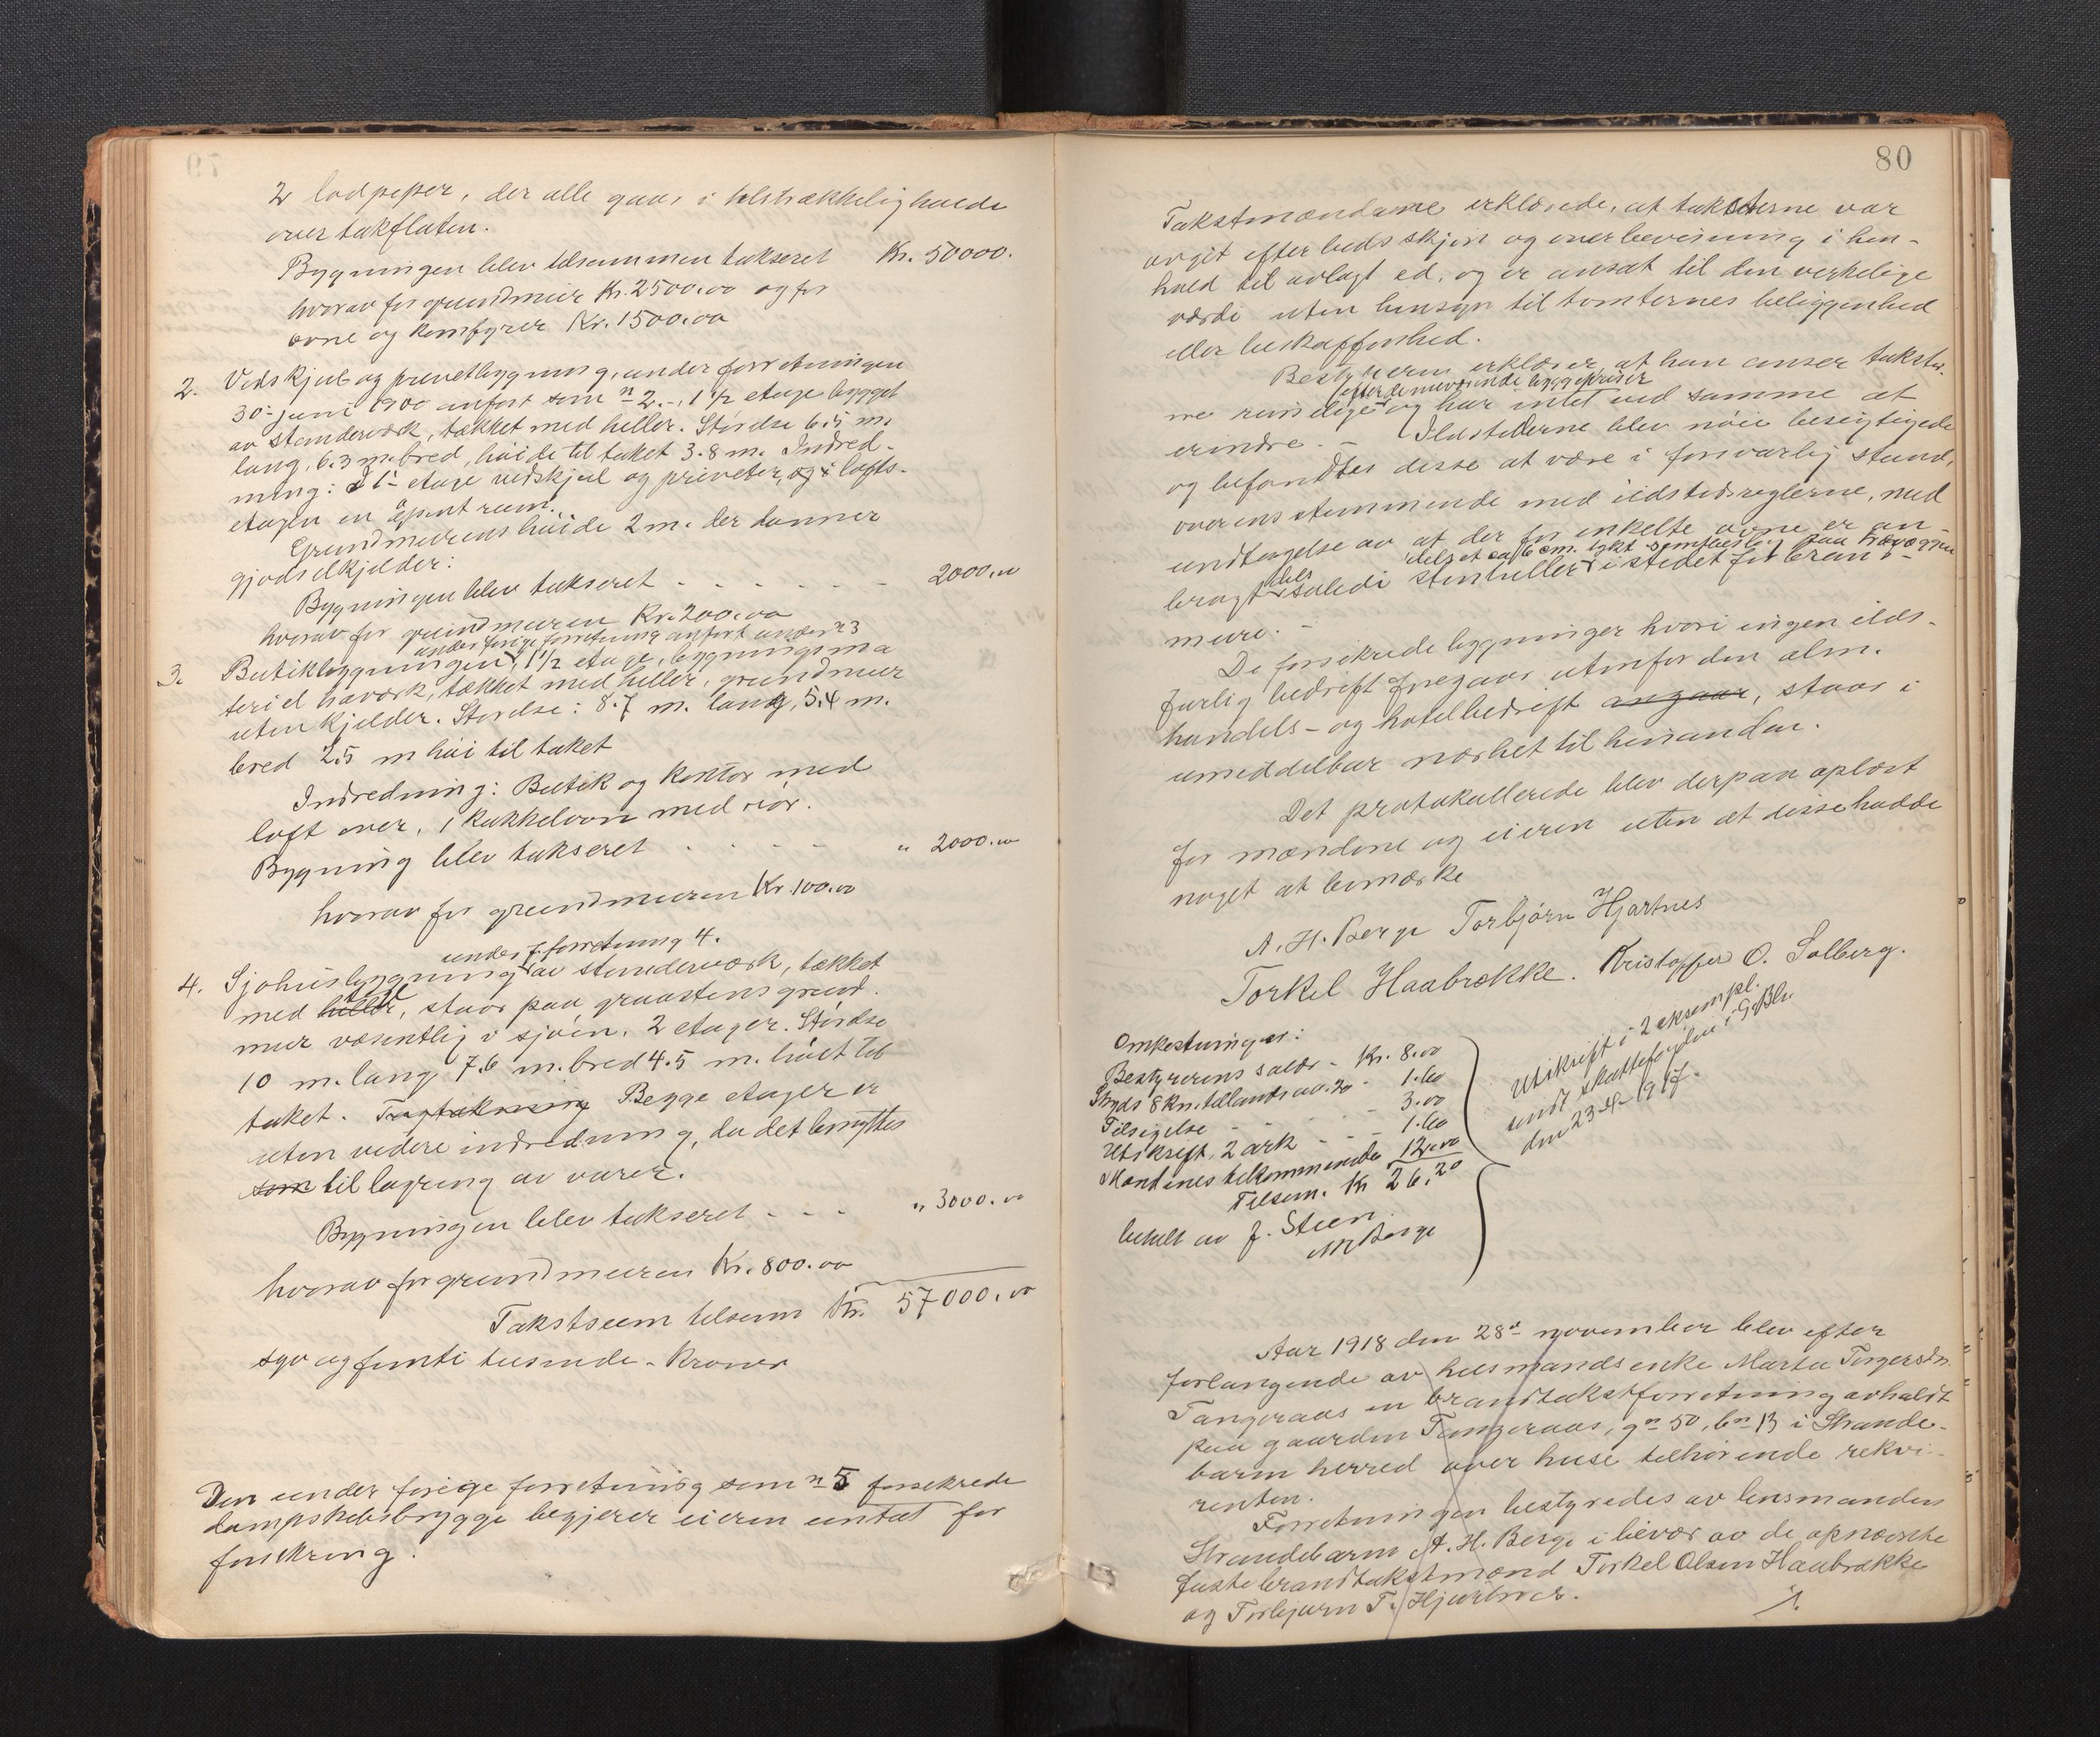 2 lodpiper, der alle gaar i tilstrækkelig høide
over takflaten.
Bygningen blev tilsammen takseret Kr. 50000.
hvorav for grundmur Kr. 2500.00 og for
ovne og komfyrer Kr. 1500.00
2. Vedskjul og privetbygning, under forretningen
30- juni 1900 anført som n 2. -, 1 1/2 etage bygget
av standerværk, tækket med heller. Størelse 6.5 m.
lang, 6.3 m. bred, høide til taket 3.8 m. Indred-
ning: I 1- etage vedskjul og priveter, og i lofts-
etagen en åpent rum.
Grundmurens høide 2 m. der danner
gjødselkjelder:
Bygningen blev takseret - - - - - - - 2000.00
hvorav for grundmuren Kr. 200.00
under forige forretning anført under n 3
3. Butikbygningen, 1 1/2 etage, bygningsma
teriel lavværk, tækket med heller, grundmur
uten kjelder. Størelse: 8.7 m. lang, 5.4 m.
bred 2.5 m høi til taket
Indredning: Butik og kontor med
loft over, 1 kakkelovn med rør.
Bygning blev takseret - - - - " 2000.00
hvorav for grundmuren Kr. 100.00
under f. forretning 4.
4. Sjøhusbygning av standerværk, tækket
med heller, staar paa graastens grund
mur væsentlig i sjøen. 2 etager. Størelse
10 m. lang 7.6 m. bred 4.5 m. høiet til
taket. Begge etager er
uten videre indredning, da det benyttes
som til lagring av varer.
Bygningen blev takseret - - - " 3000.00
hvorav for grundmuren Kr. 800.00
Takstsum tilsam Kr. 57000.00
syv og femti tusinde - Kroner
Den under forige forretning som n 5 forsikrede
dampskibsbrygge begjerer eieren untat for
forsikring.
80
Takstmændene erklærede, at taksterne var
avgit efter beds skjøn og overbevisning i hen-
hold til avlagt ed, og er ansat til den virkelige
værdi uten hensyn til tomternes beliggenhed
eller beskaffenhed.
Bestyreren erklærer at han anser takster-
efter de nuværende byggepriser
ne rimelige og har intet ved samme at
erindre. - Ildstederne blev nøie besigtigede
og befandtes disse at være i forsvarlig stand,
overensstemmende med ildstedsreglerne, med
undtagelse av at der for enkelte ovne er an-
dels et ca 6 cm. tykt sementbelæg paa trævæggen
bragt dels solide stenheller i stedet for brand-
mure. -
De forsikrede bygninger hvori ingen ilds-
farlig bedrift foregaar utenfor den alm.
handels- og hotelbedrift angaar, staar i
umiddelbar nærhet til hinanden.
Det protokollerede blev derpaa oplæst
for mændene og eieren uten at disse hadde
noget at bemærke
A. H. Berge Torbjørn Hjartnes
Torkel Haabrække. Kristoffer O. Solberg.
Omkostninger:
Bestyrerens salær - Kr. 8.00
Skyds 8 km. tillands a 0.20 - 1.60
Tilsigelse - - - - 3.00
Utskrift, 2 ark - - - 1.60
Mændenes tilkommende 12.00
Tilsam. Kr 26.20
betalt av J. Steen.
AHBerge
Utskrift i 2 eksempl.
sendt skattefogden i
den 23- 1917.
Aar 1918 den 28de november blev efter
forlangende av husmandsenke Marta Torgersdtr.
Tangeraas en brandtakstforretning avholdt
paa gaarden Tangeraas, gn 50, bn 13 i Strande-
barm herred over huse tilhørende rekvi-
renten.
Forretningen bestyredes av lensmanden
Strandebarm A. H. Berge i bivær av de opnævnte
faste brandtakstmænd Torkel Olsen Haabrække
og Torbjørn T. Hjartnes.